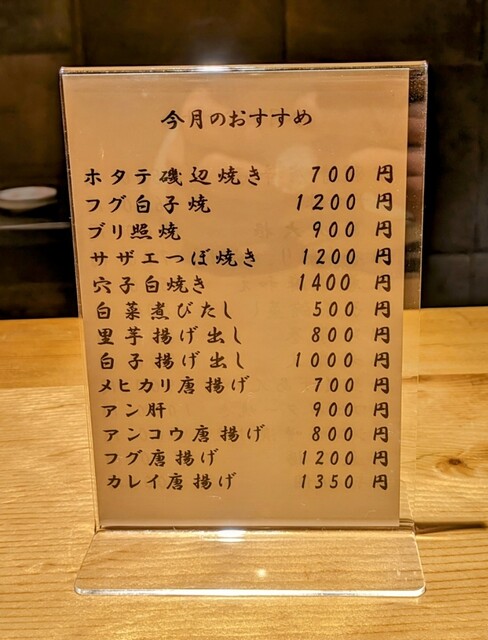 今月のおすすめ
ホタテ磯辺焼き 700 円
フグ白子焼 1200 円
ブリ照焼 900 円
サザエつぼ焼き 1200 円
穴子白焼き 1400 円
白菜煮びたし 500 円
里芋揚げ出し 800 円
白子揚げ出し 1000 円
メヒカリ唐揚げ 700 円
アン肝 900 円
アンコウ唐揚げ 800 円
フグ唐揚げ 1200 円
カレイ唐揚げ 1350 円